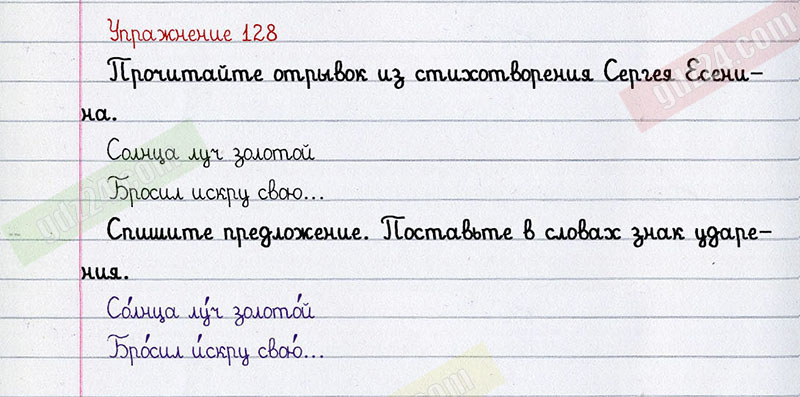 Упражнение 128
Прочитайте отрывок из стихотворения Сергея Есени-
на.
Солнца луч золотой
Бросил искру свою...
Спишите предложение. Поставьте в словах знак ударе-
ния.
Со́лнца лу́ч золото́й
Бро́сил и́скру свою́...
gdz24.com
gdz24.com